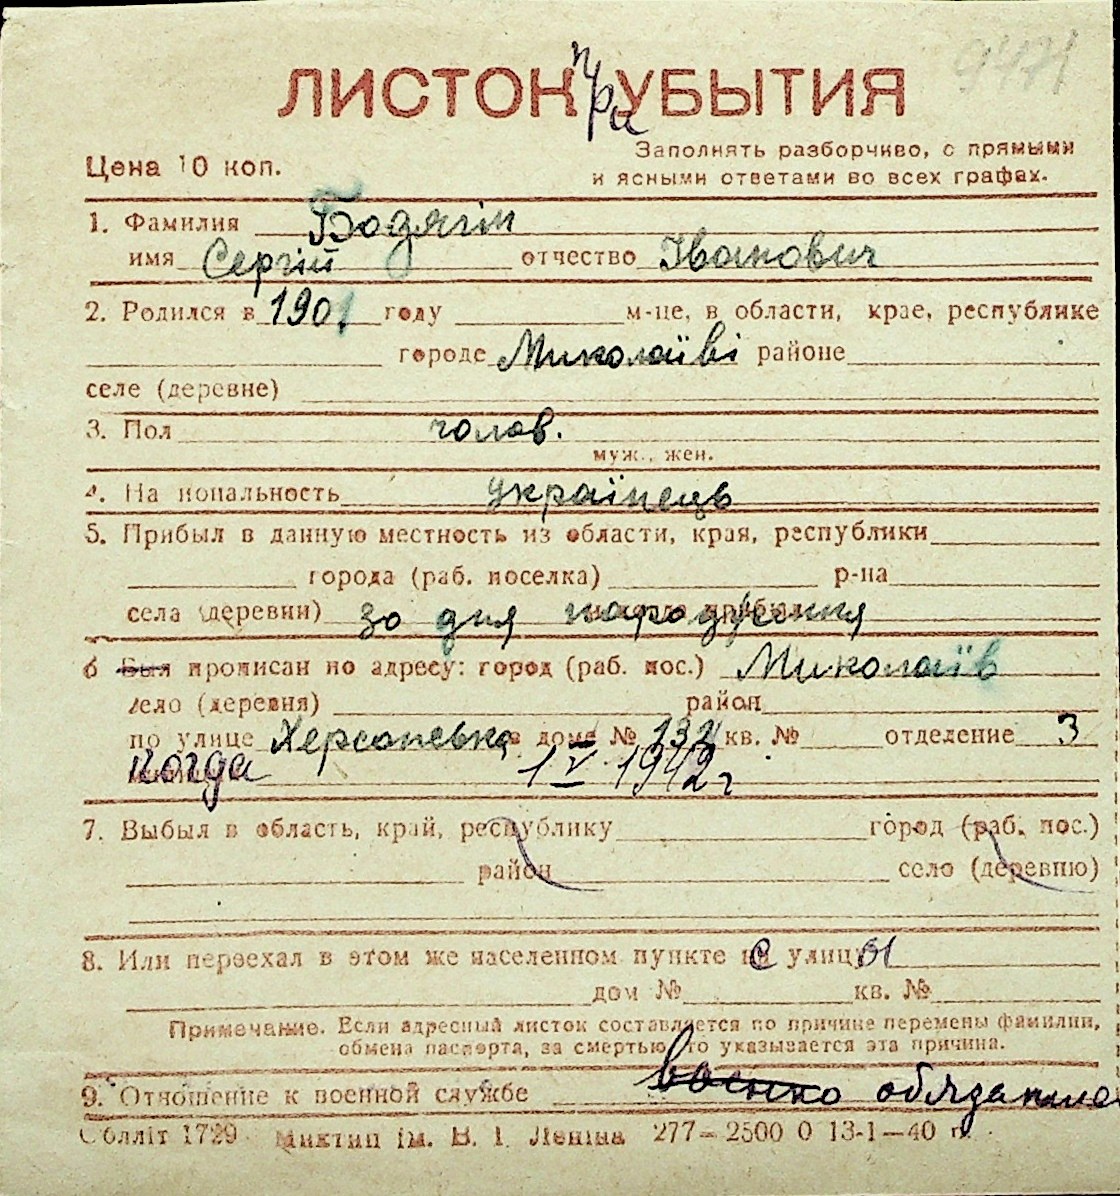 9471
ЛИСТОК при УБЫТИЯ
Цена 10 коп.
Заполнять разборчиво, с прямыми
и ясными ответами во всех графах.
1. Фамилия Бодягін
имя Сергій отчество Іванович
2. Родился в 1901 году м-це, в области, крае, республике
городе Миколаїві районе
селе (деревне)
3. Пол чолов.
муж., жен.
4. На иональность українець
5. Прибыл в данную местность из области, края, республики
города (раб. поселка) р-на
села (деревни) зо дня народження
6 Был прописан по адресу: город (раб. пос.) Миколаїв
село (деревня) район
по улице Херсонська в доме № 132 кв. № отделение 3
когда 1 V 1942 г
7. Выбыл в область, край, республику город (раб. пос.)
район село (деревню)
8. Или переехал в этом же населенном пункте с улицы
дом № кв. №
Примечание. Если адресный листок составляется по причине перемены фамилии,
обмена паспорта, за смертью то указывается эта причина.
9. Отношение к военной службе военно обязаные
Облліт 1729 Миктип ім. В. І. Леніна 277—2500 0 13-1—40 г.